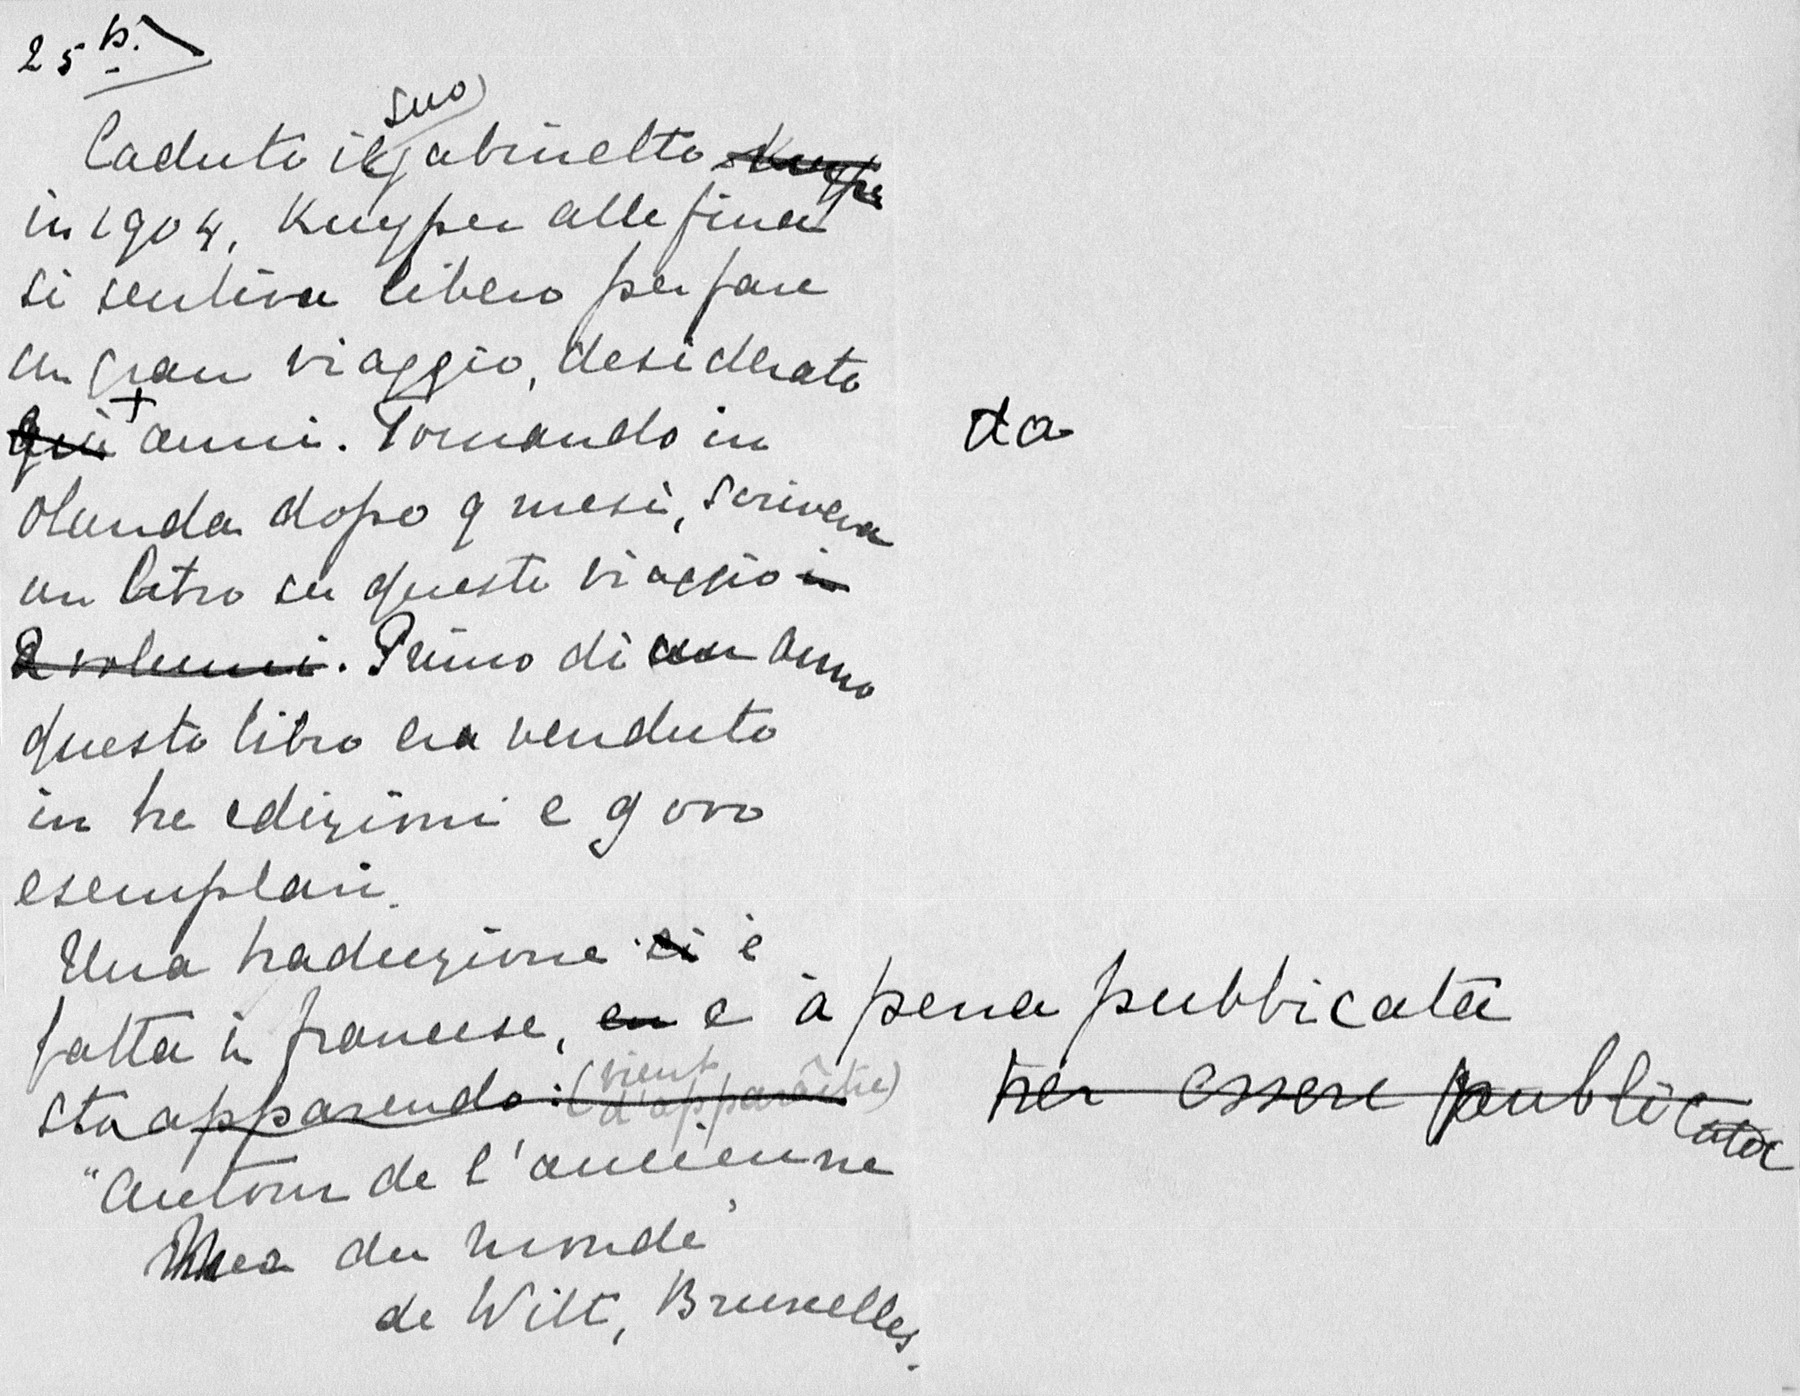 25 b.
suo
Caduto il gabinetto Kuyper
in 1904, Kuyper alle fina
si sentiva libero per fare
un gran viaggio, desiderato
già + anni. Tornando in da
olanda dopo 9 mesi, scriveva
un libro su questo viaggio in
2 volumi. Primo di un anno
questo libro era venduto
in tre edizioni e 9000
esemplari.
Una traduzione si è
fatta in francese, en e à pena pubblicata
sta apparendo: (vient d'apparâitre) per essere publicata
"Autour de l'ancienne
Mer du monde"
de Wilt, Bruxelles.